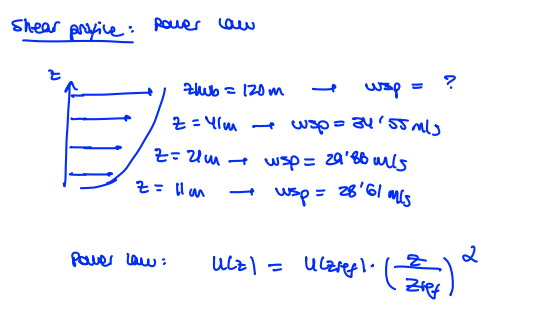 Shear profile: Power law
z
zhub = 120m → wsp = ?
z = 41m → wsp = 34'55 m/s
z = 21m → wsp = 29'88 m/s
z = 11m → wsp = 28'61 m/s
Power law: U(z) = U(zref) · (z / zref)^α